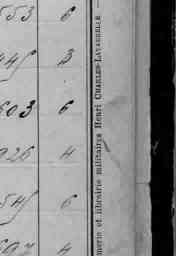 553 6
445 3
603 6
926 4
545 6
597 4
merie et librairie militaires Henri CHARLES-LAVAUZELLE. —